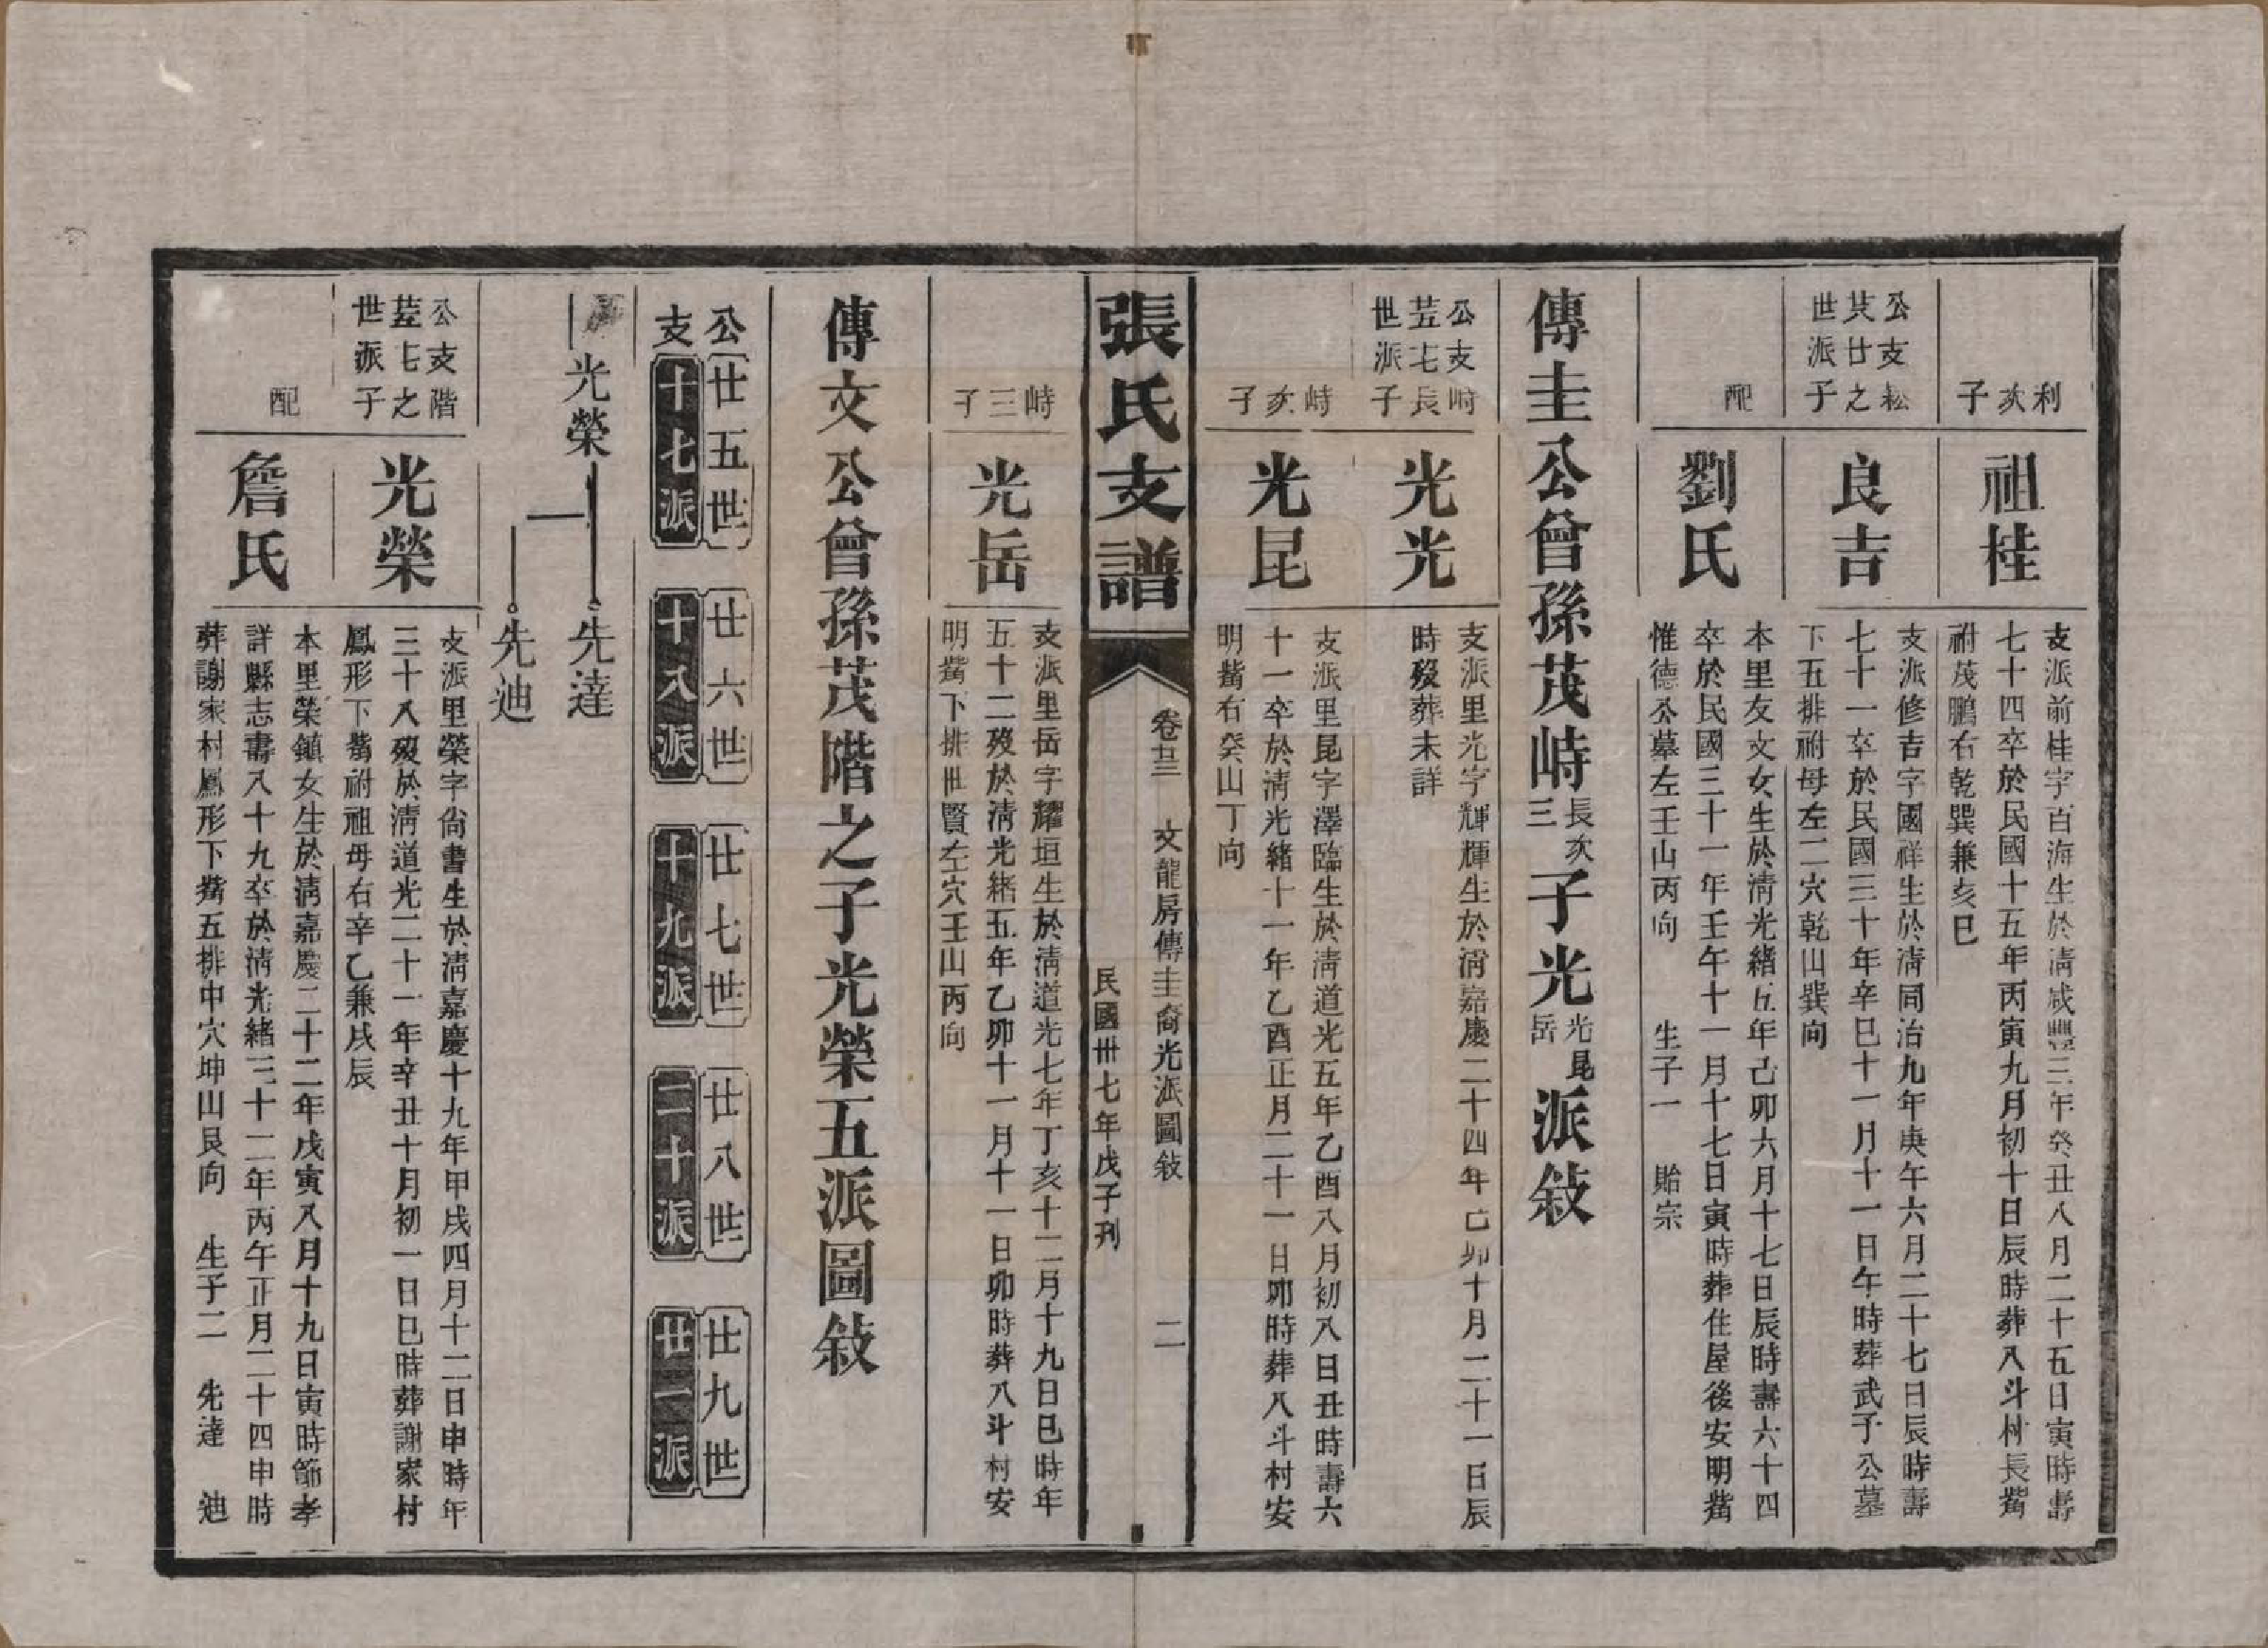 利次子
祖桂
支派前桂字百海生於清咸豐三年癸丑八月二十五日寅時壽
七十四卒於民國十五年丙寅九月初十日辰時葬八斗村長嘴
祔茂鵬右乾巽兼亥巳
公支崧
廿之
世派子
良吉
支派修吉字國祥生於清同治九年庚午六月二十七日辰時壽
七十一卒於民國三十年辛巳十一月十一日午時葬武子公墓
下五排祔母左二穴乾山巽向
配
劉氏
本里友文女生於清光緒五年己卯六月十七日辰時壽六十四
卒於民國三十一年壬午十一月十七日寅時葬住屋後安明嘴
惟德公墓左壬山丙向 生子一 貽宗
傳圭公曾孫茂峙長次三子光光昆岳派敍
公支峙
七長
世派子
光光
支派里光字輝輝生於清嘉慶二十四年己卯十月二十一日辰
時歿葬未詳
峙次子
光昆
支派里昆字澤臨生於清道光五年乙酉八月初八日丑時壽六
十一卒於清光緒十一年乙酉正月二十一日卯時葬八斗村安
明嘴右癸山丁向
張氏支譜
卷 文龍房傳圭裔光派圖敍 二
民國卅七年戊子刊
峙三子
光岳
支派里岳字耀垣生於清道光七年丁亥十二月十九日巳時年
五十二歿於清光緒五年乙卯十一月十一日卯時葬八斗村安
明嘴下排世賢左穴壬山丙向
傳文公曾孫茂階之子光榮五派圖敍
公 廿五世 廿六世 廿七世 廿八世 廿九世
支 十七派 十八派 十九派 二十派 廿一派
光榮 先達
先迪
公支階
七之
世派子
光榮
支派里榮字尙書生於清嘉慶十九年甲戌四月十二日申時年
三十八歿於清道光二十一年辛丑十月初一日巳時葬謝家村
鳳形下嘴祔祖母右辛乙兼戌辰
配
詹氏
本里榮鎮女生於清嘉慶二十二年戊寅八月十九日寅時節孝
詳縣志壽八十九卒於清光緒三十二年丙午正月二十四申時
葬謝家村鳳形下嘴五排中穴坤山艮向 生子二 先達 迪